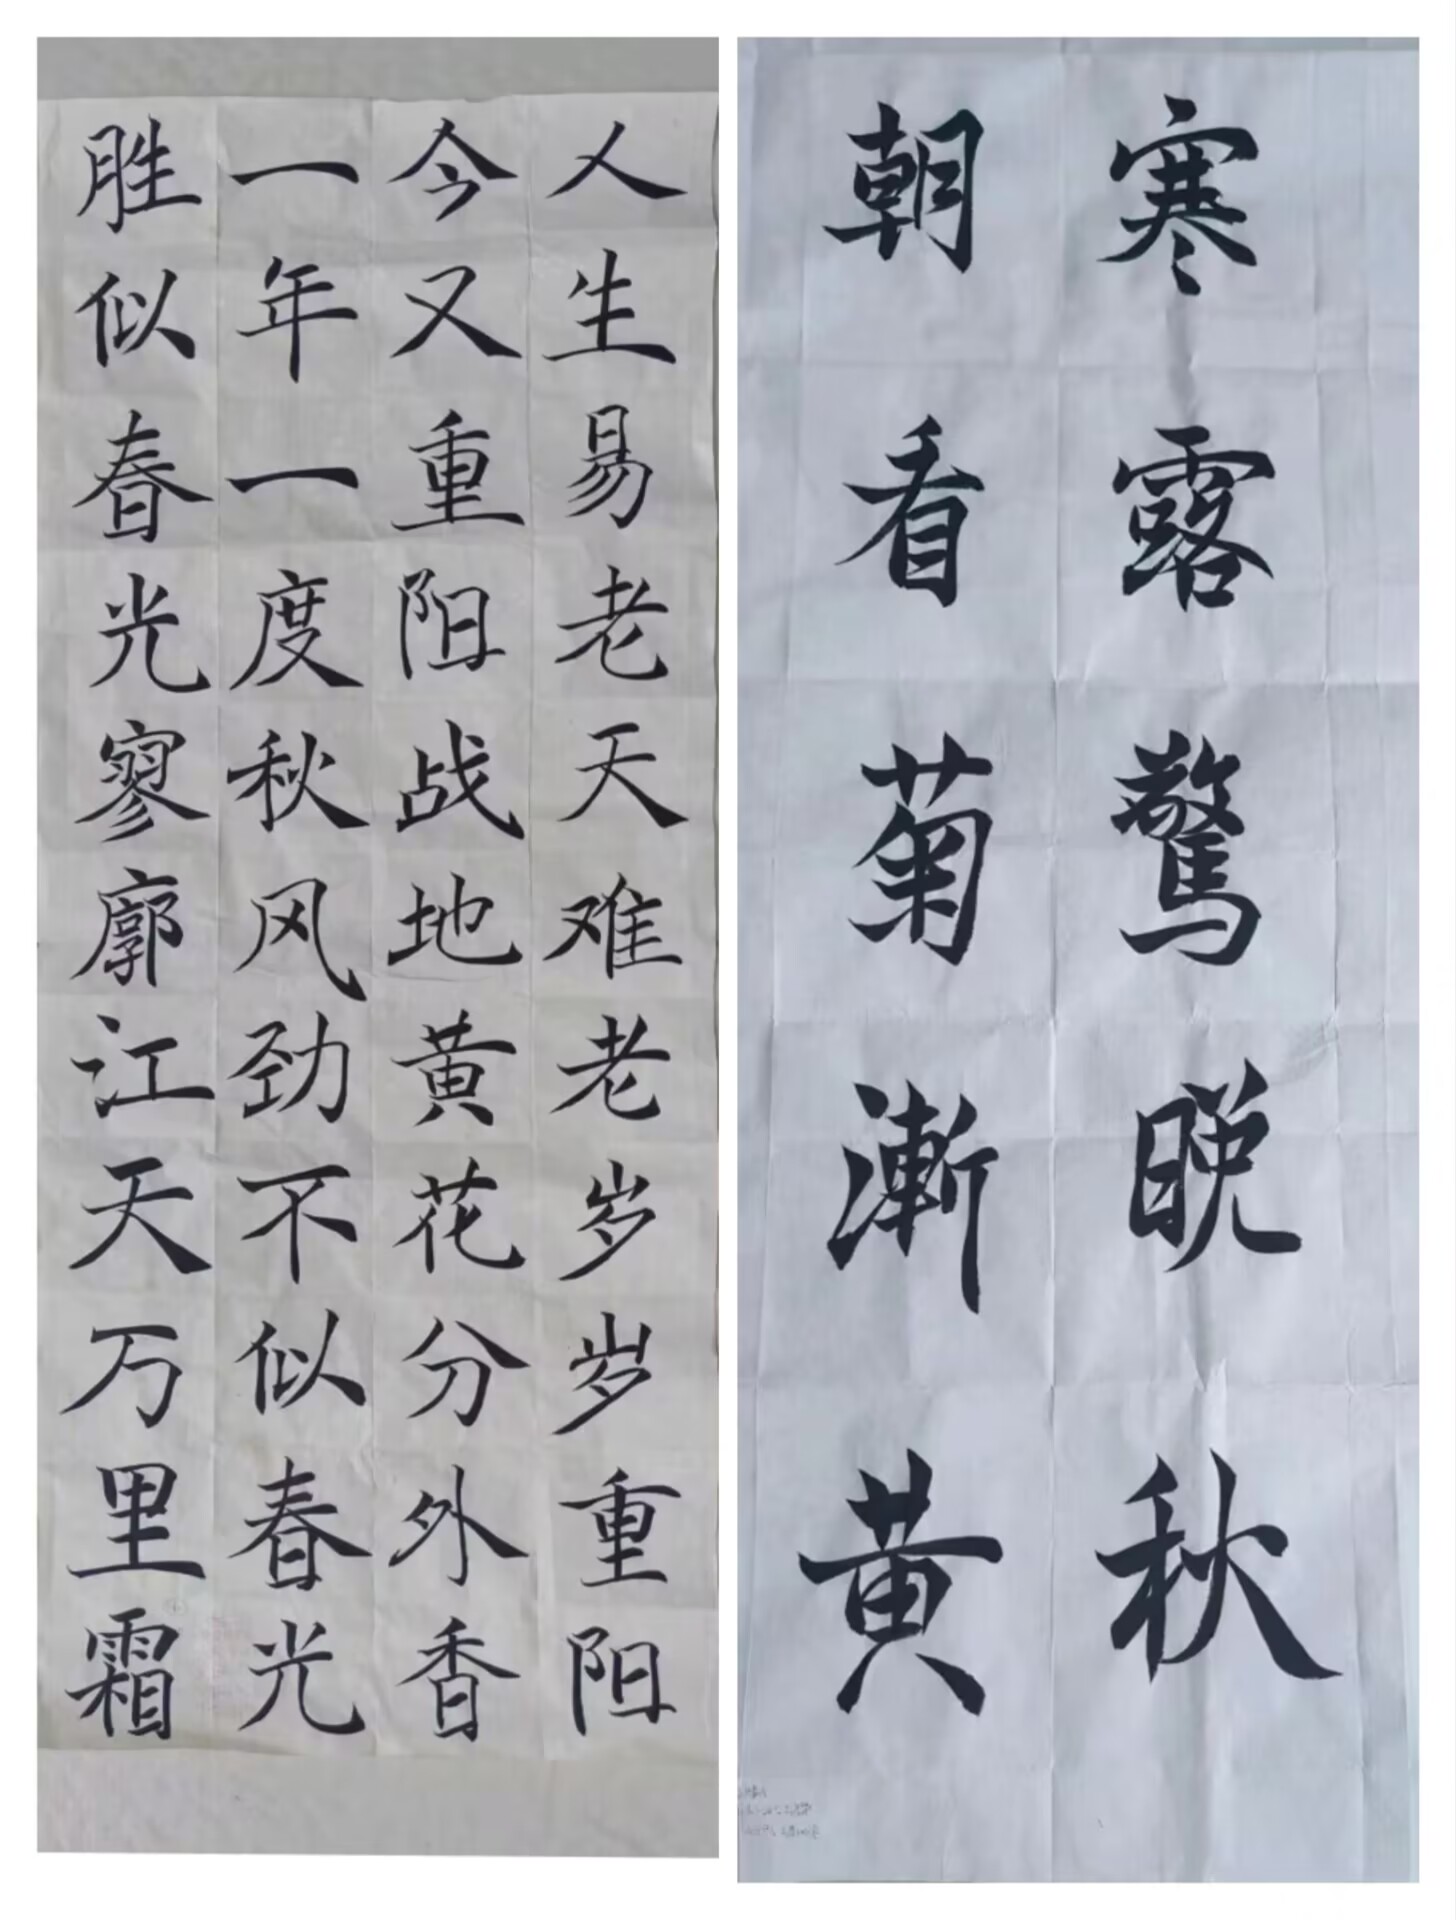 人生易老天难老岁岁重阳
今又重阳战地黄花分外香
一年一度秋风劲不似春光
胜似春光寥廓江天万里霜
寒露驚晚秋
朝看菊漸黄